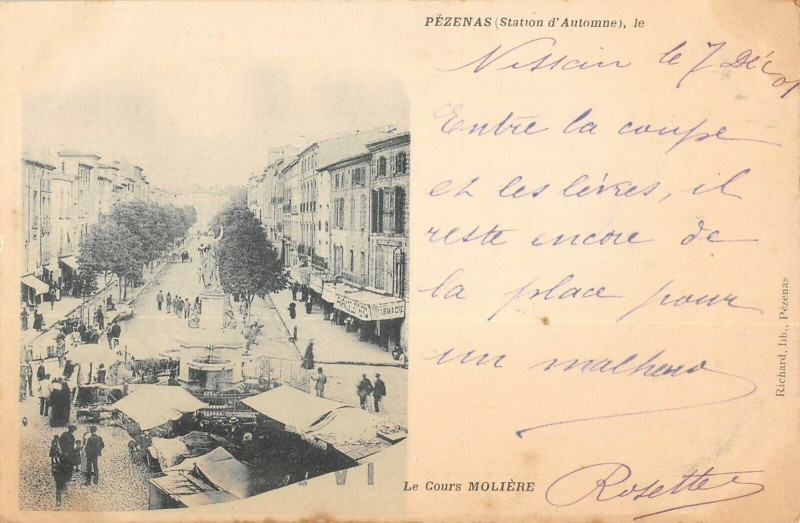 PÉZENAS (Station d'Automne), le
Nissan le 7 Déc 01
Entre la coupe
et les lèvres, il
reste encore de
la place pour
un malheur
Rosette
Le Cours MOLIÈRE
Richard, lib., Pézenas
PHARMACIE